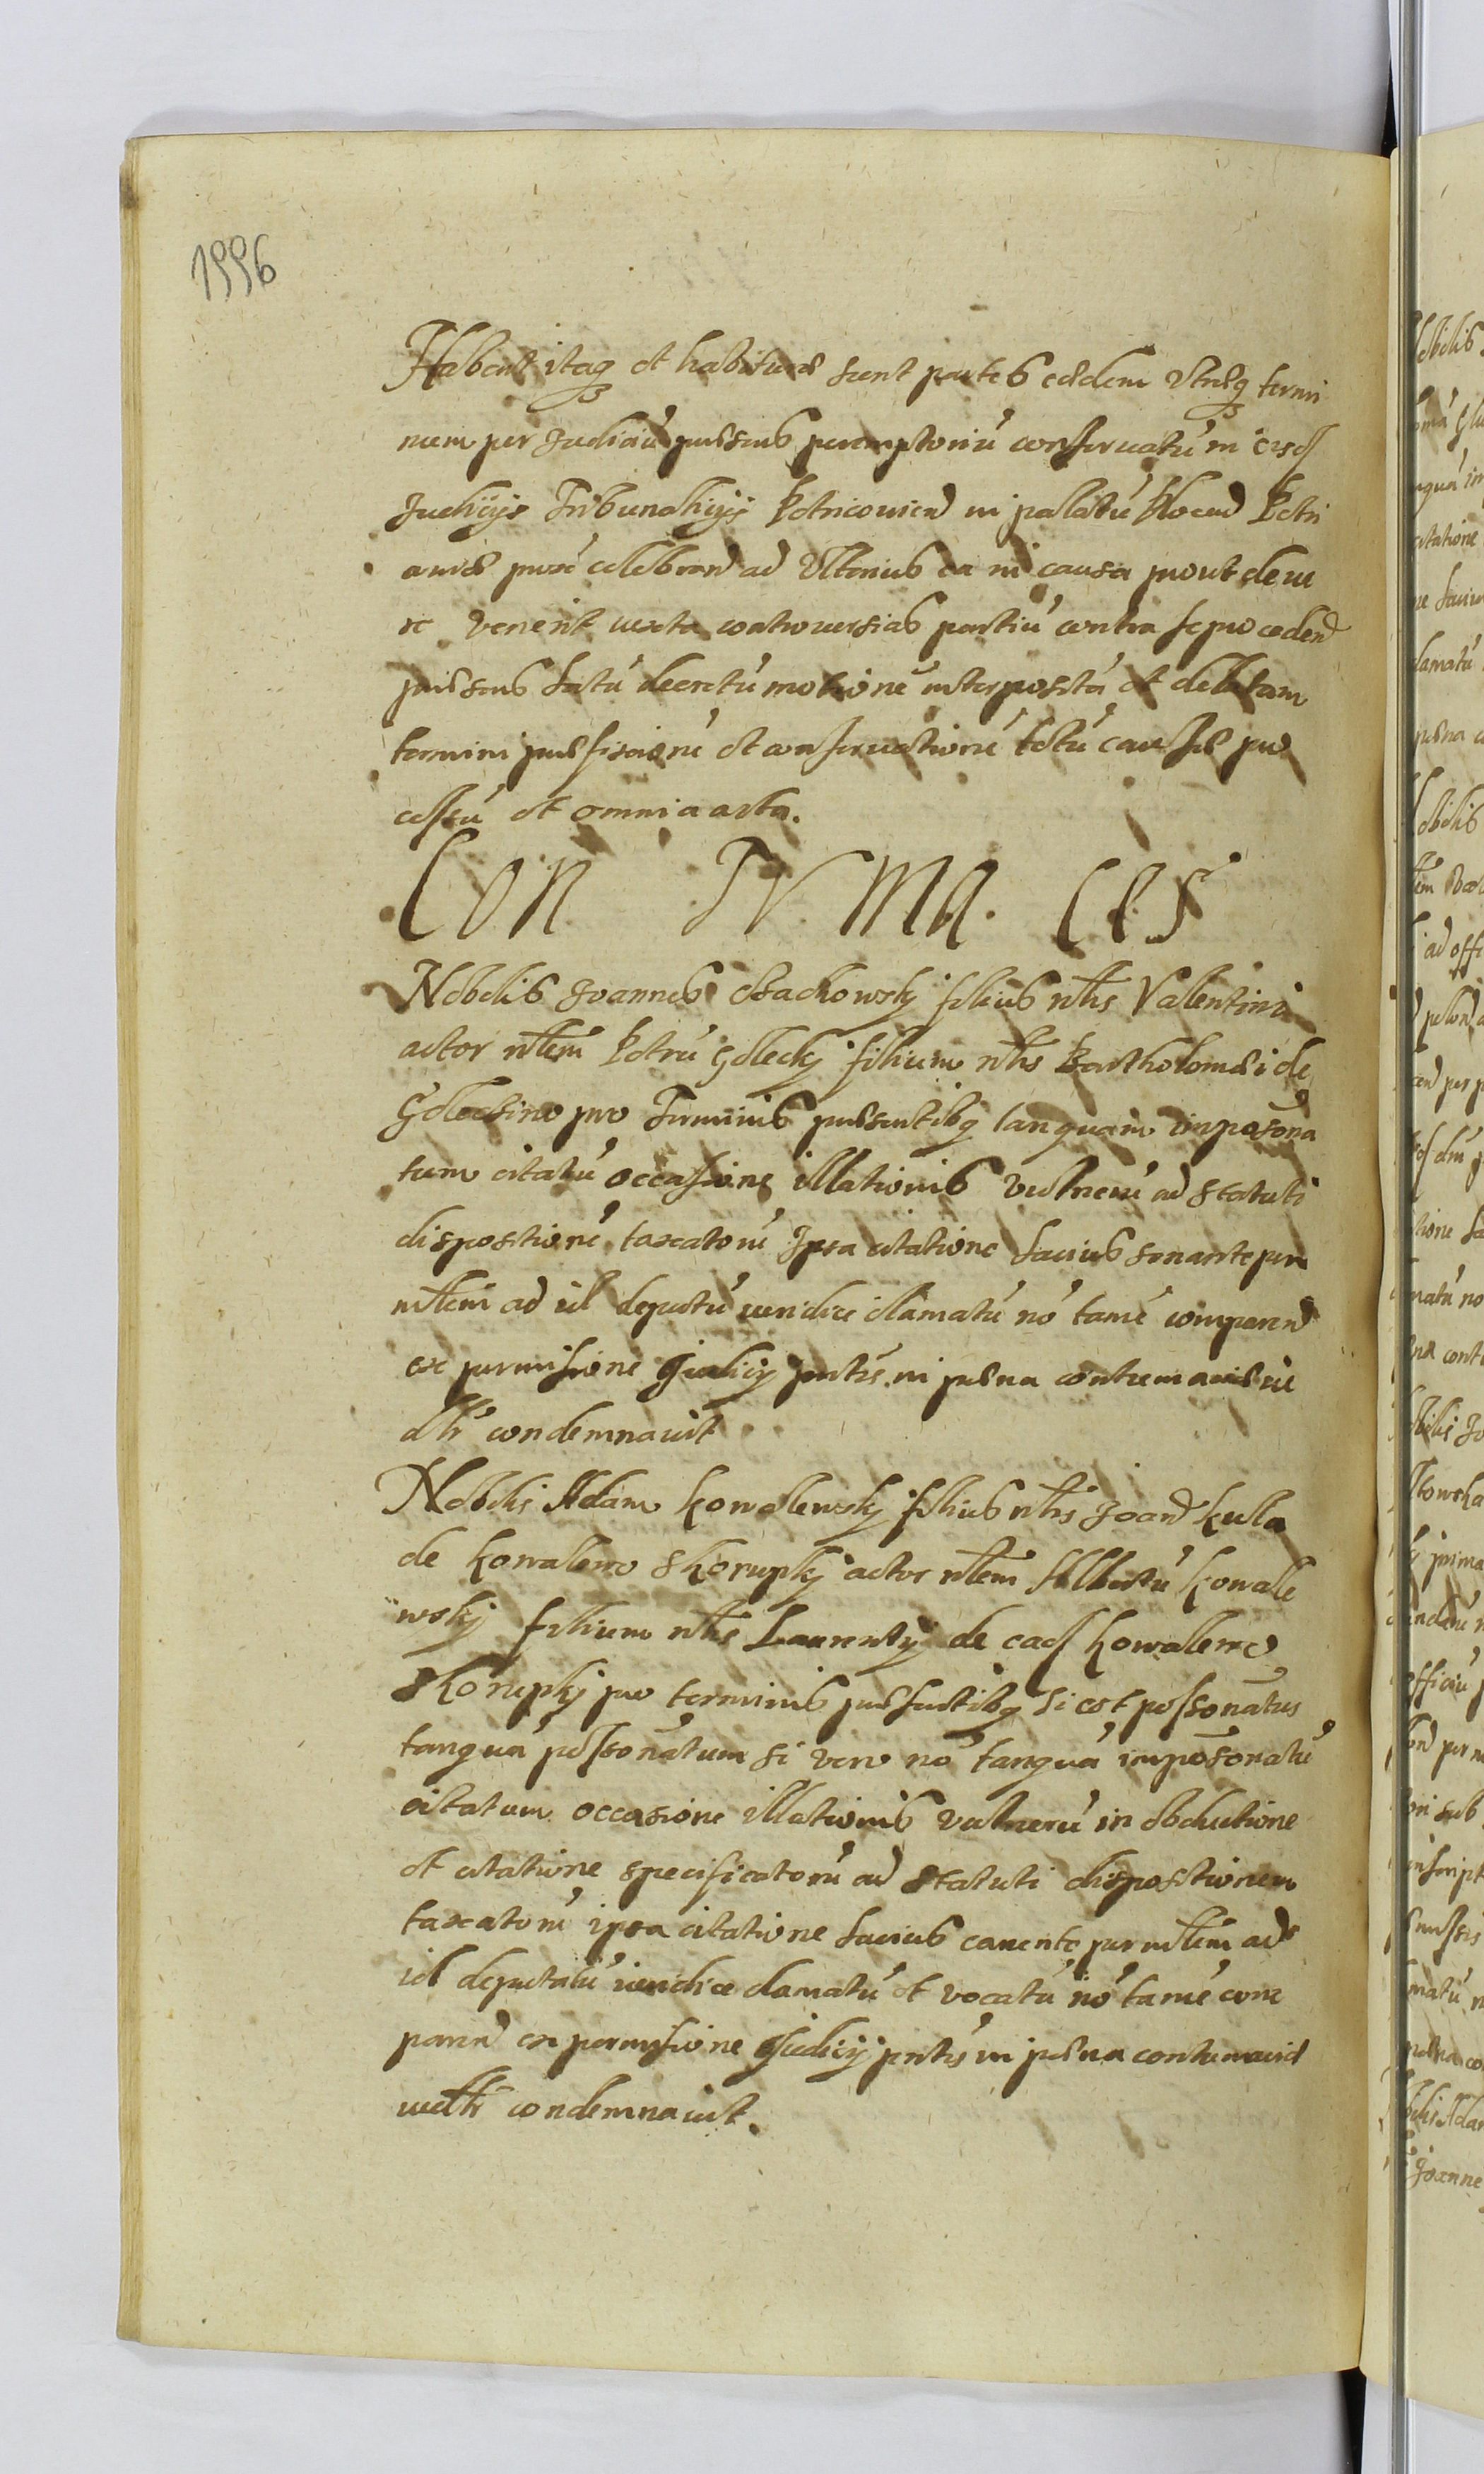 1996
Habent itaq et habituræ sunt partes eædem vtræq termi
num per Judiciū præsens peremptoriū conseruatū in eisd
Judicijs Tribunalicijs Petricouien in palatū Plocen Petri
couiæ proxe celebran ad vlterius ea in causa prout de iu
re venerit iuxta controuersias partiū contra se proceden
præsens latū decretū motionē interpositā et delatam
termini præfixionē et conseruationē totū causæ pro
cessū et omnia acta.
Con TV Ma. CES
Nobilis Joannes filius nlis Valentini
actor nlem Petrū Golecky filium nlis Bartholomæi de
pro Terminis præsentibq tanquam imposōna
tum citatū occasione illationis vulnerū ad statuti
dispositionē taxatorū Ipsa citatione latius sonante per
mlem ad id deputū iuridice clamatū nō tamē comparen
ex permissione Judicij pntis in pæna contumaciæ
condemnauit
Nobilis Adam Kowalewsky filius nlis Joan Kula
de Kowalewo Skorupky actor nlem Albertū Kowale
wsky filium nlis Laurentij de ead Kowalewo
Skorupky pro terminis præsentibq si est possonatus
tanquā possonatum si vero nō tanquā impōsonatū
citatum occasione illationis vulnerū in obductione
et citatione specificatorū ad statuti dispositionem
taxatorū ipsa citatione latius canente per mlem ad
id deputatū iuridice clamatū et vocatū nō tamē com
paren ex permissione Judicij pntis in pæna
condemnauit.